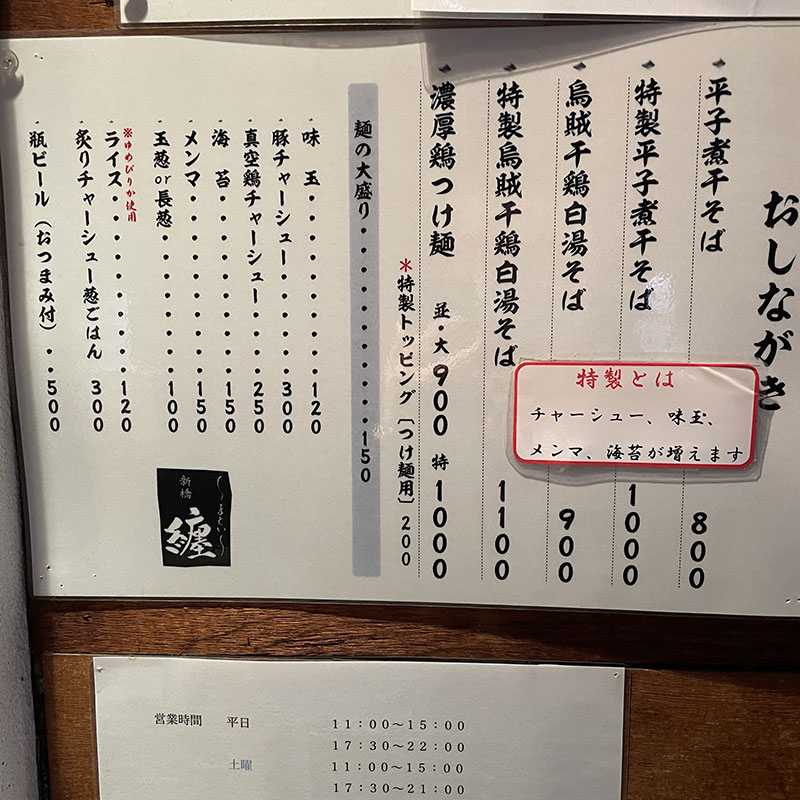 おしながき
平子煮干そば 800
特製平子煮干そば 1000
烏賊干鶏白湯そば 900
特製烏賊干鶏白湯そば 1100
濃厚鶏つけ麺 並・大900 特1000
＊特製トッピング〔つけ麺用〕200
特製とは
チャーシュー、味玉、
メンマ、海苔が増えます
麺の大盛り・・・・・・・・・・・150
味玉・・・・・・・・・120
豚チャーシュー・・・・・300
真空鶏チャーシュー・・・・250
海苔・・・・・・・・・150
メンマ・・・・・・・・150
玉葱or長葱・・・・・・・100
ライス・・・・・・・・120
※ゆめぴりか使用
炙りチャーシュー葱ごはん 300
瓶ビール（おつまみ付）・・500
新橋
纏
営業時間 平日 11:00～15:00
17:30～22:00
土曜 11:00～15:00
17:30～21:00